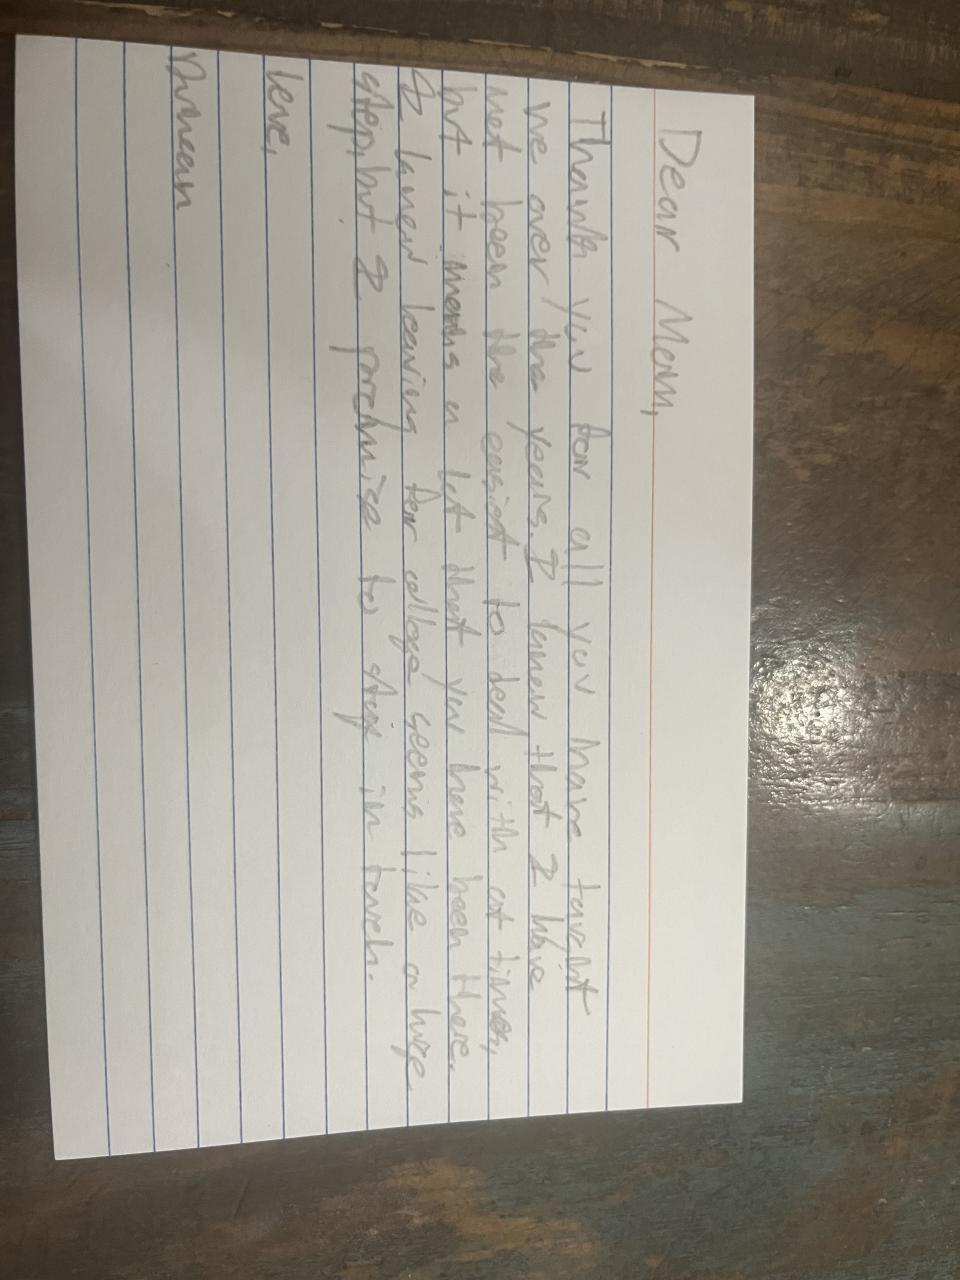 Dear Mom,
Thank you for all you have taught
me over the years. I know that I have
not been the easiest to deal with at times,
but it means a lot that you have been there.
I know leaving for college seems like a huge
step, but I promise to stay in touch.
Love,
Duncan